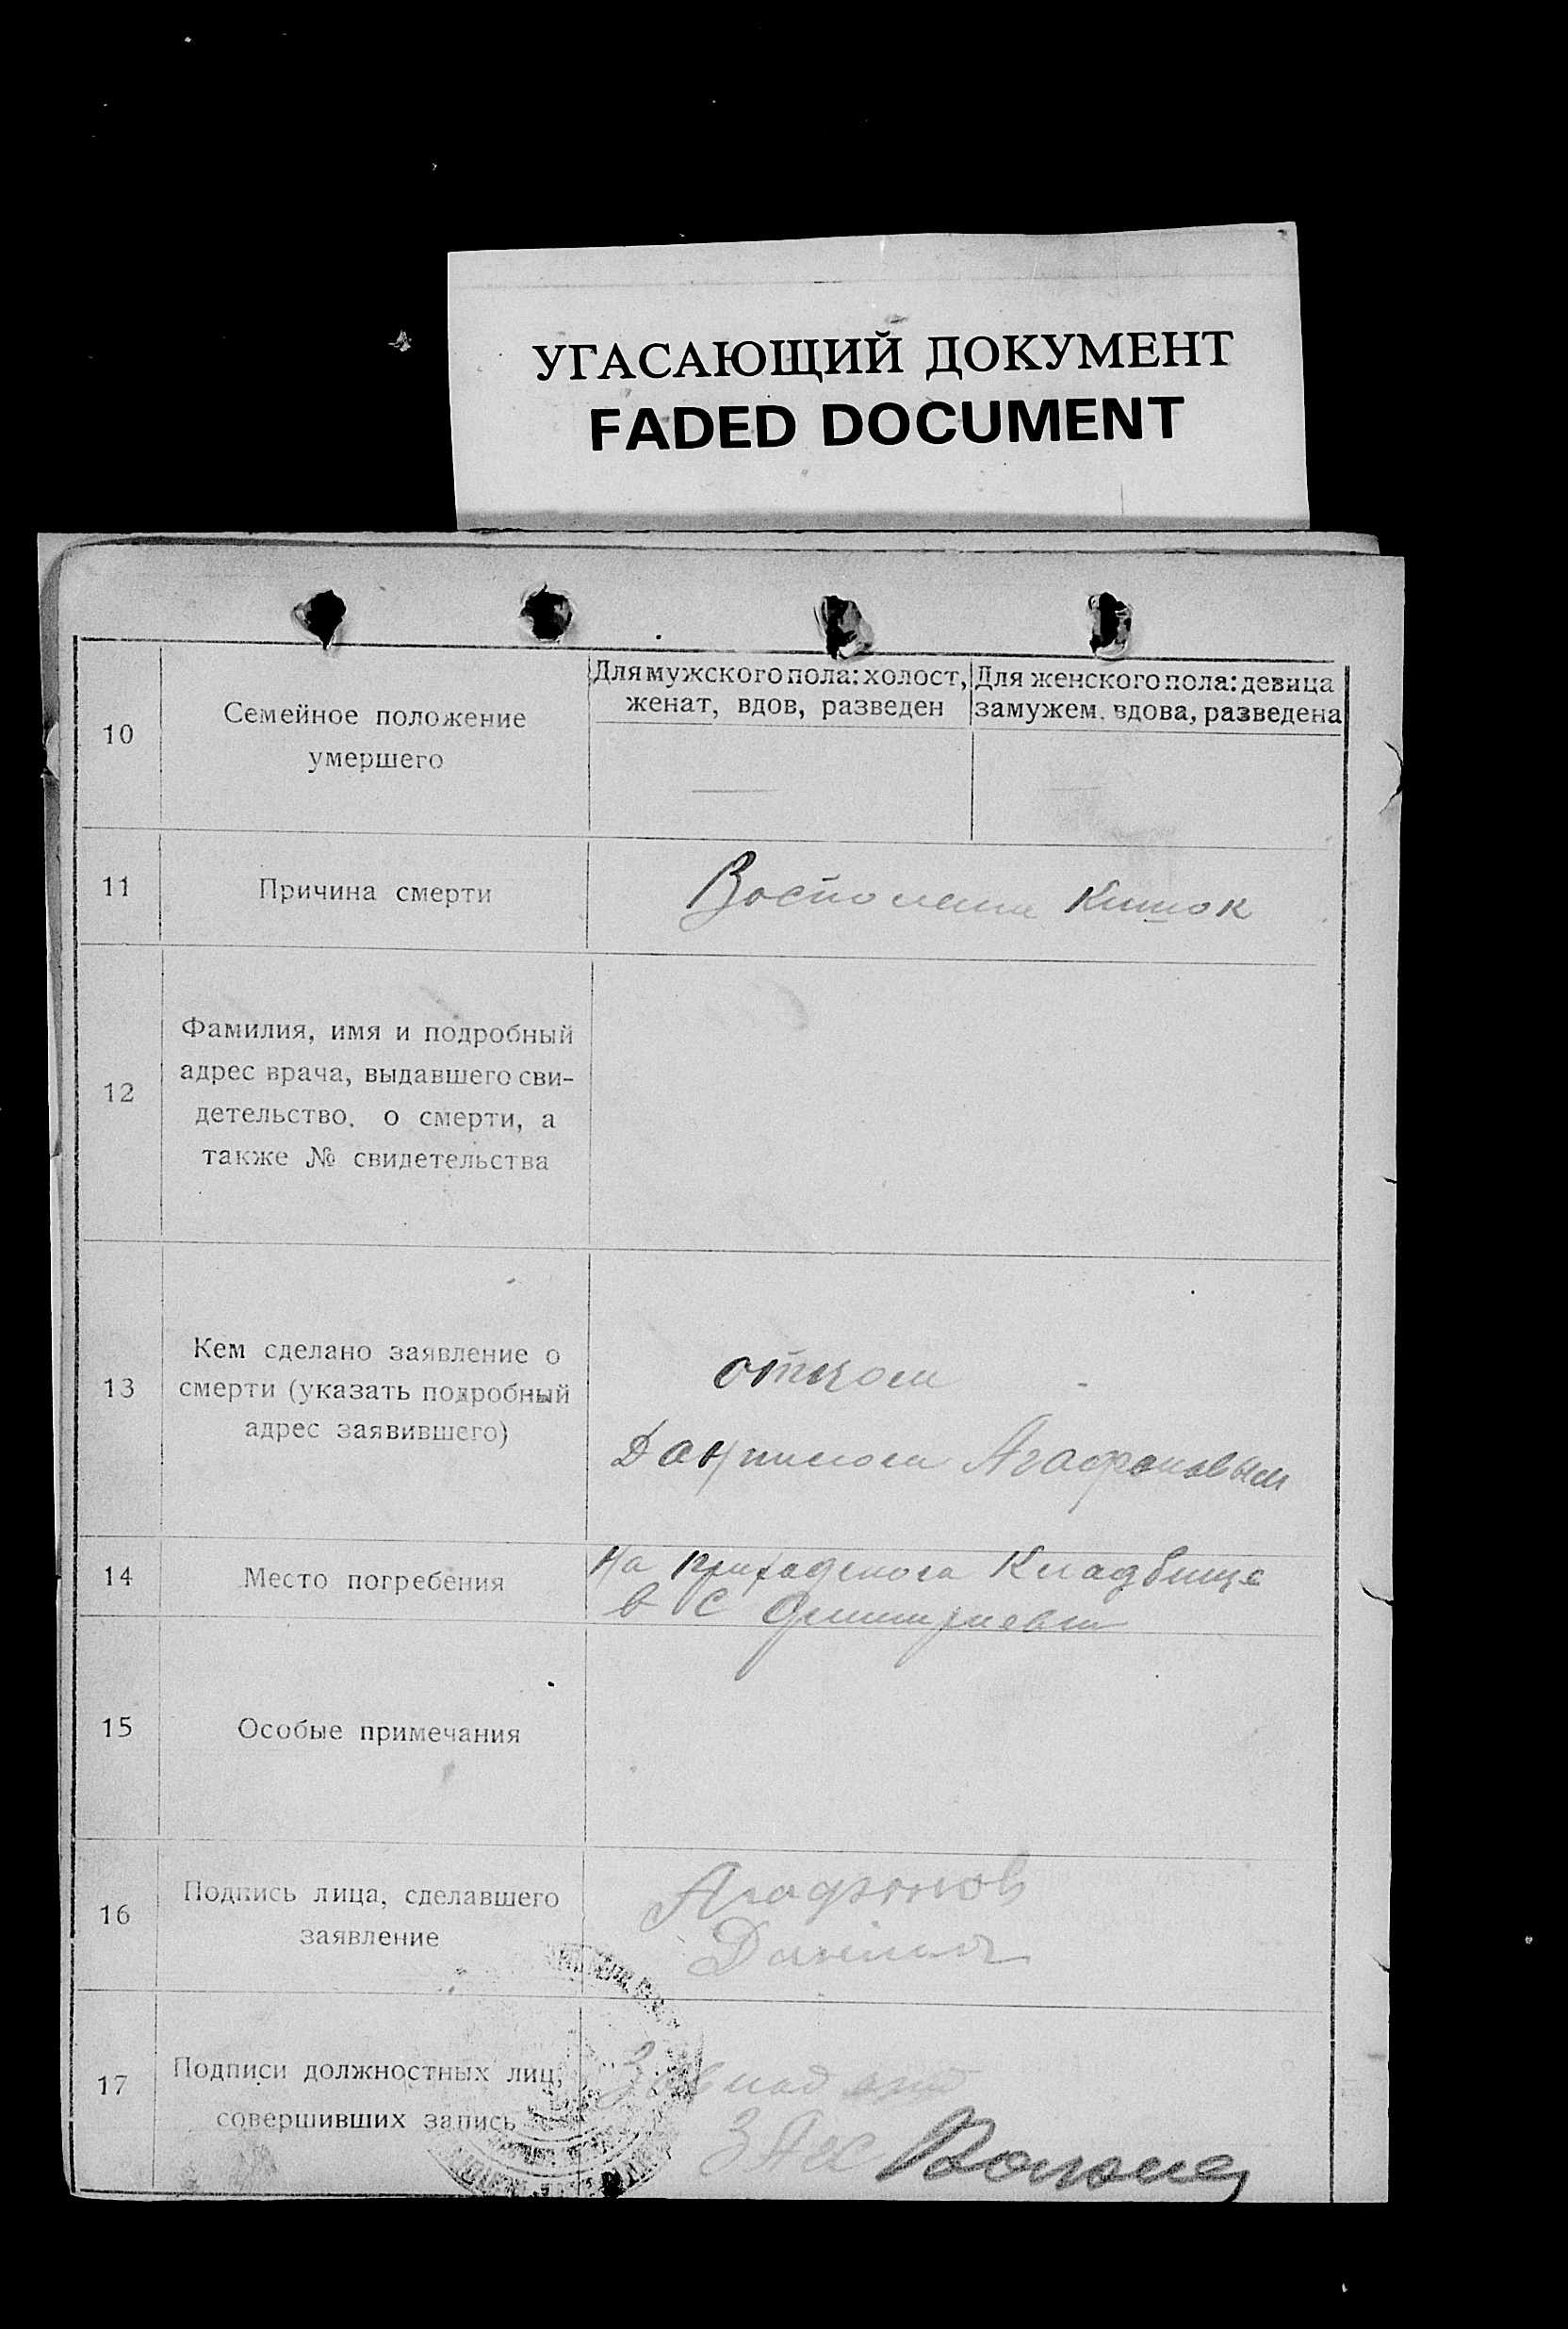 УГАСАЮЩИЙ ДОКУМЕНТ
FADED DOCUMENT
10
Семейное положение
умершего
Для мужского пола: холост,
женат, вдов, разведен
Для женского пола: девица
замужем. вдова, разведена
11
Причина смерти
Кишок
12
Фамилия, имя и подробный
адрес врача, выдавшего сви-
детельство. о смерти, а
также № свидетельства
13
Кем сделано заявление о
смерти (указать подробный
адрес заявившего)
отцом
Даниилом Агафоновым
14
Место погребения
на Кладбище
в С
15
Особые примечания
16
Подпись лица, сделавшего
заявление
Агафонов
17
Подписи должностных лиц,
совершивших запись